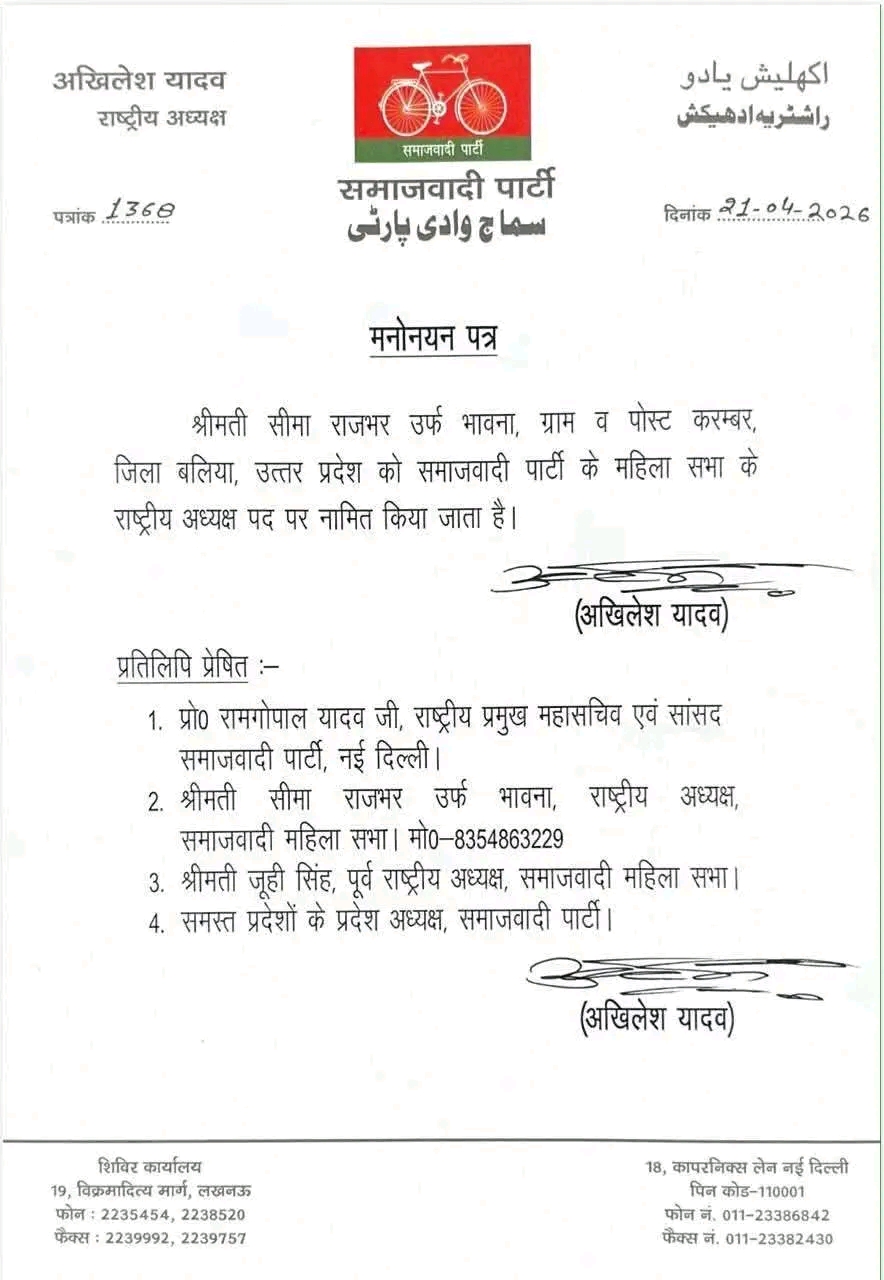 अखिलेश यादव
राष्ट्रीय अध्यक्ष
समाजवादी पार्टी
اکھلیش یادو
راشٹریہ ادھیکش
समाजवादी पार्टी
سماج وادی پارٹی
पत्रांक 1368
दिनांक 21-04-2026
मनोनयन पत्र
श्रीमती सीमा राजभर उर्फ भावना, ग्राम व पोस्ट करम्बर,
जिला बलिया, उत्तर प्रदेश को समाजवादी पार्टी के महिला सभा के
राष्ट्रीय अध्यक्ष पद पर नामित किया जाता है।
(अखिलेश यादव)
प्रतिलिपि प्रेषित :–
1. प्रो0 रामगोपाल यादव जी, राष्ट्रीय प्रमुख महासचिव एवं सांसद
समाजवादी पार्टी, नई दिल्ली।
2. श्रीमती सीमा राजभर उर्फ भावना, राष्ट्रीय अध्यक्ष,
समाजवादी महिला सभा। मो0–8354863229
3. श्रीमती जूही सिंह, पूर्व राष्ट्रीय अध्यक्ष, समाजवादी महिला सभा।
4. समस्त प्रदेशों के प्रदेश अध्यक्ष, समाजवादी पार्टी।
(अखिलेश यादव)
शिविर कार्यालय
19, विक्रमादित्य मार्ग, लखनऊ
फोन : 2235454, 2238520
फैक्स : 2239992, 2239757
18, कापरनिक्स लेन नई दिल्ली
पिन कोड–110001
फोन नं. 011-23386842
फैक्स नं. 011-23382430